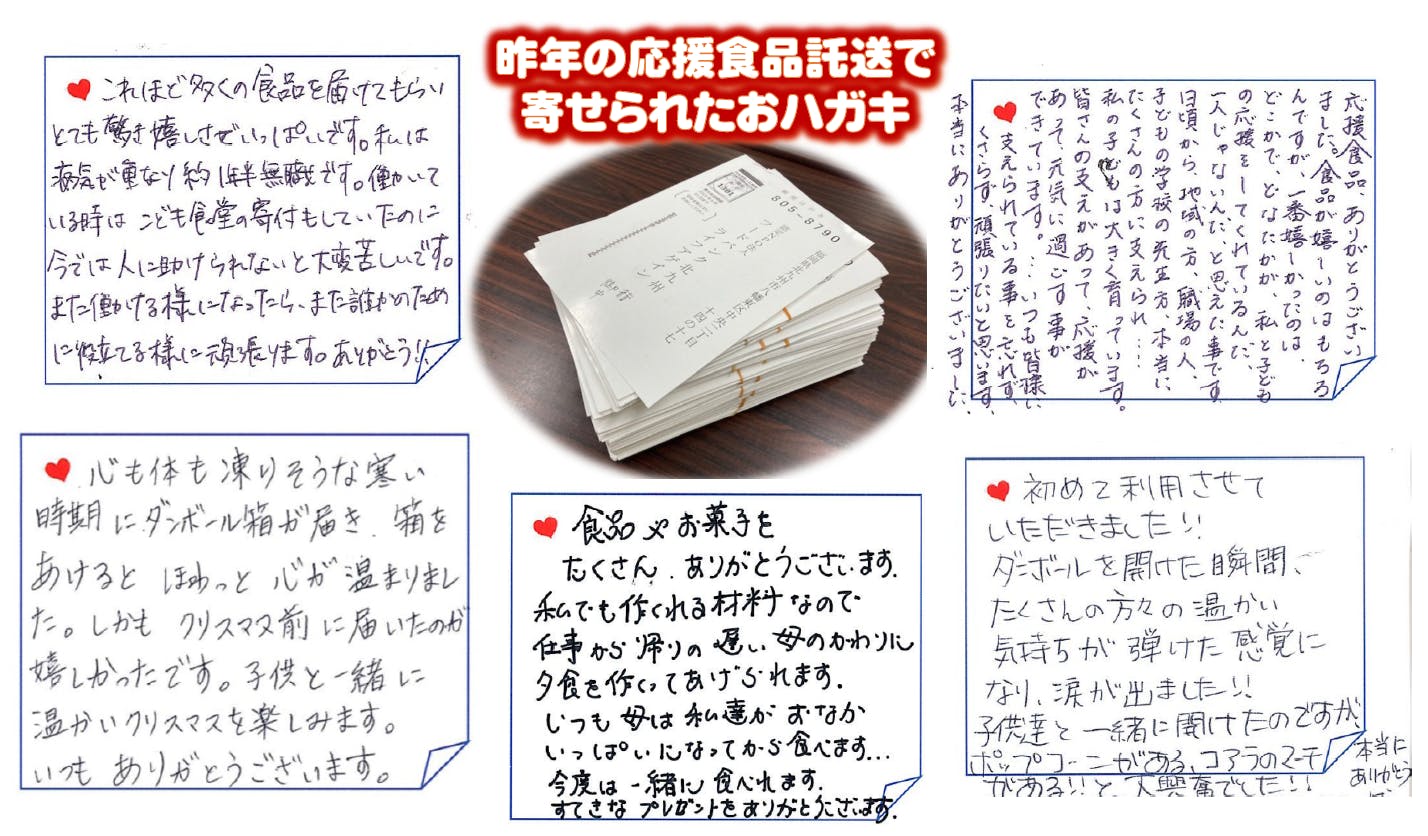 昨年の応援食品託送で
寄せられたおハガキ
これほど多くの食品を届けてもらい
とても驚き嬉しさでいっぱいです。私は
病気が重なり約1年半無職です。働いて
いる時はこども食堂の寄付もしていたのに
今では人に助けられないと大変苦しいです。
また働ける様になったら、また誰かのため
に役立てる様に頑張ります。ありがとう!!
805-8790
福岡県北九州市八幡東区中央二丁目
十四の十七
認定NPO法人
フードバンク北九州
ライフアゲイン
行
応援食品、ありがとうござい
ました。食品が嬉しいのはもちろ
んですが、一番嬉しかったのは、
どこかで、どなたかが、私と子ども
の応援をしてくれているんだ、
一人じゃないんだ、と思えた事です。
日頃から、地域の方、職場の人、
子どもの学校の先生方、本当に
たくさんの方に支えられ...
私の子どもは大きく育っています。
皆さんの支えがあって、応援が
あって、元気に過ごす事が
できています。...いつも皆様に
支えられている事を忘れず、
くさらず、頑張りたいと思います。
本当にありがとうございました。
心も体も凍りそうな寒い
時期にダンボール箱が届き、箱を
あけると ほわっと 心が温まりまし
た。しかも クリスマス前に届いたのが
嬉しかったです。子供と一緒に
温かいクリスマスを楽しみます。
いつも ありがとうございます。
食品やお菓子を
たくさん、ありがとうございます。
私でも作くれる材料なので
仕事から帰りの遅い母のかわりに
夕食を作くってあげられます。
いつも母は私達がおなか
いっぱいになってから食べます...
今度は一緒に食べれます。
すてきなプレゼントをありがとうございます。
初めて利用させて
いただきました!!
ダンボールを開けた瞬間、
たくさんの方々の温かい
気持ちが弾けた感覚に
なり、涙が出ました!!
子供達と一緒に開けたのですが
ポップコーンがある、コアラのマーチ
がある!!と、大興奮でした!!
本当に
ありがとう